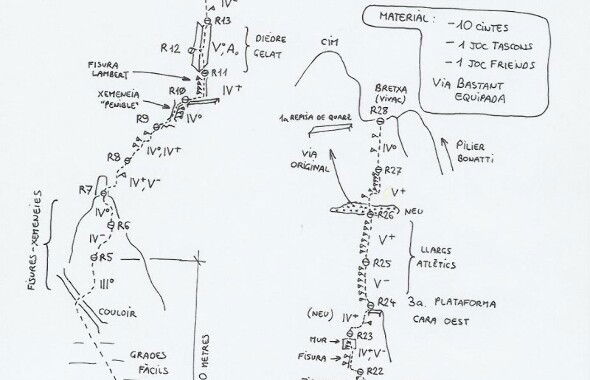 IV
R13
R12
Vº, Aº
DIEDRE
GELAT
FISURA
LAMBERT
R11
IV+
XEMENEIA
"PENIBLE"
R10
IVº
R9
IVº, IV+
R8
IV+, V-
R7
IVº
R6
IV-
R5
IIIº
FISURES-XEMENEIES
COULOIR
GRADES
FÀCILS
0 METRES
MATERIAL:
-10 CINTES
-1 JOC TASCONS
-1 JOC FRIENDS
VIA BASTANT
EQUIPADA
CIM
BRETXA
(VIVAC)
R28
IVº
VIA
ORIGINAL
R27
V+
PILIER
BONATTI
NEU
R26
V+
LLARGS
ATLÈTICS
R25
V-
R24
3a. PLATAFORMA
CARA OEST
(NEU)
IV+
R23
MUR
IV+, V-
FISURA
R22